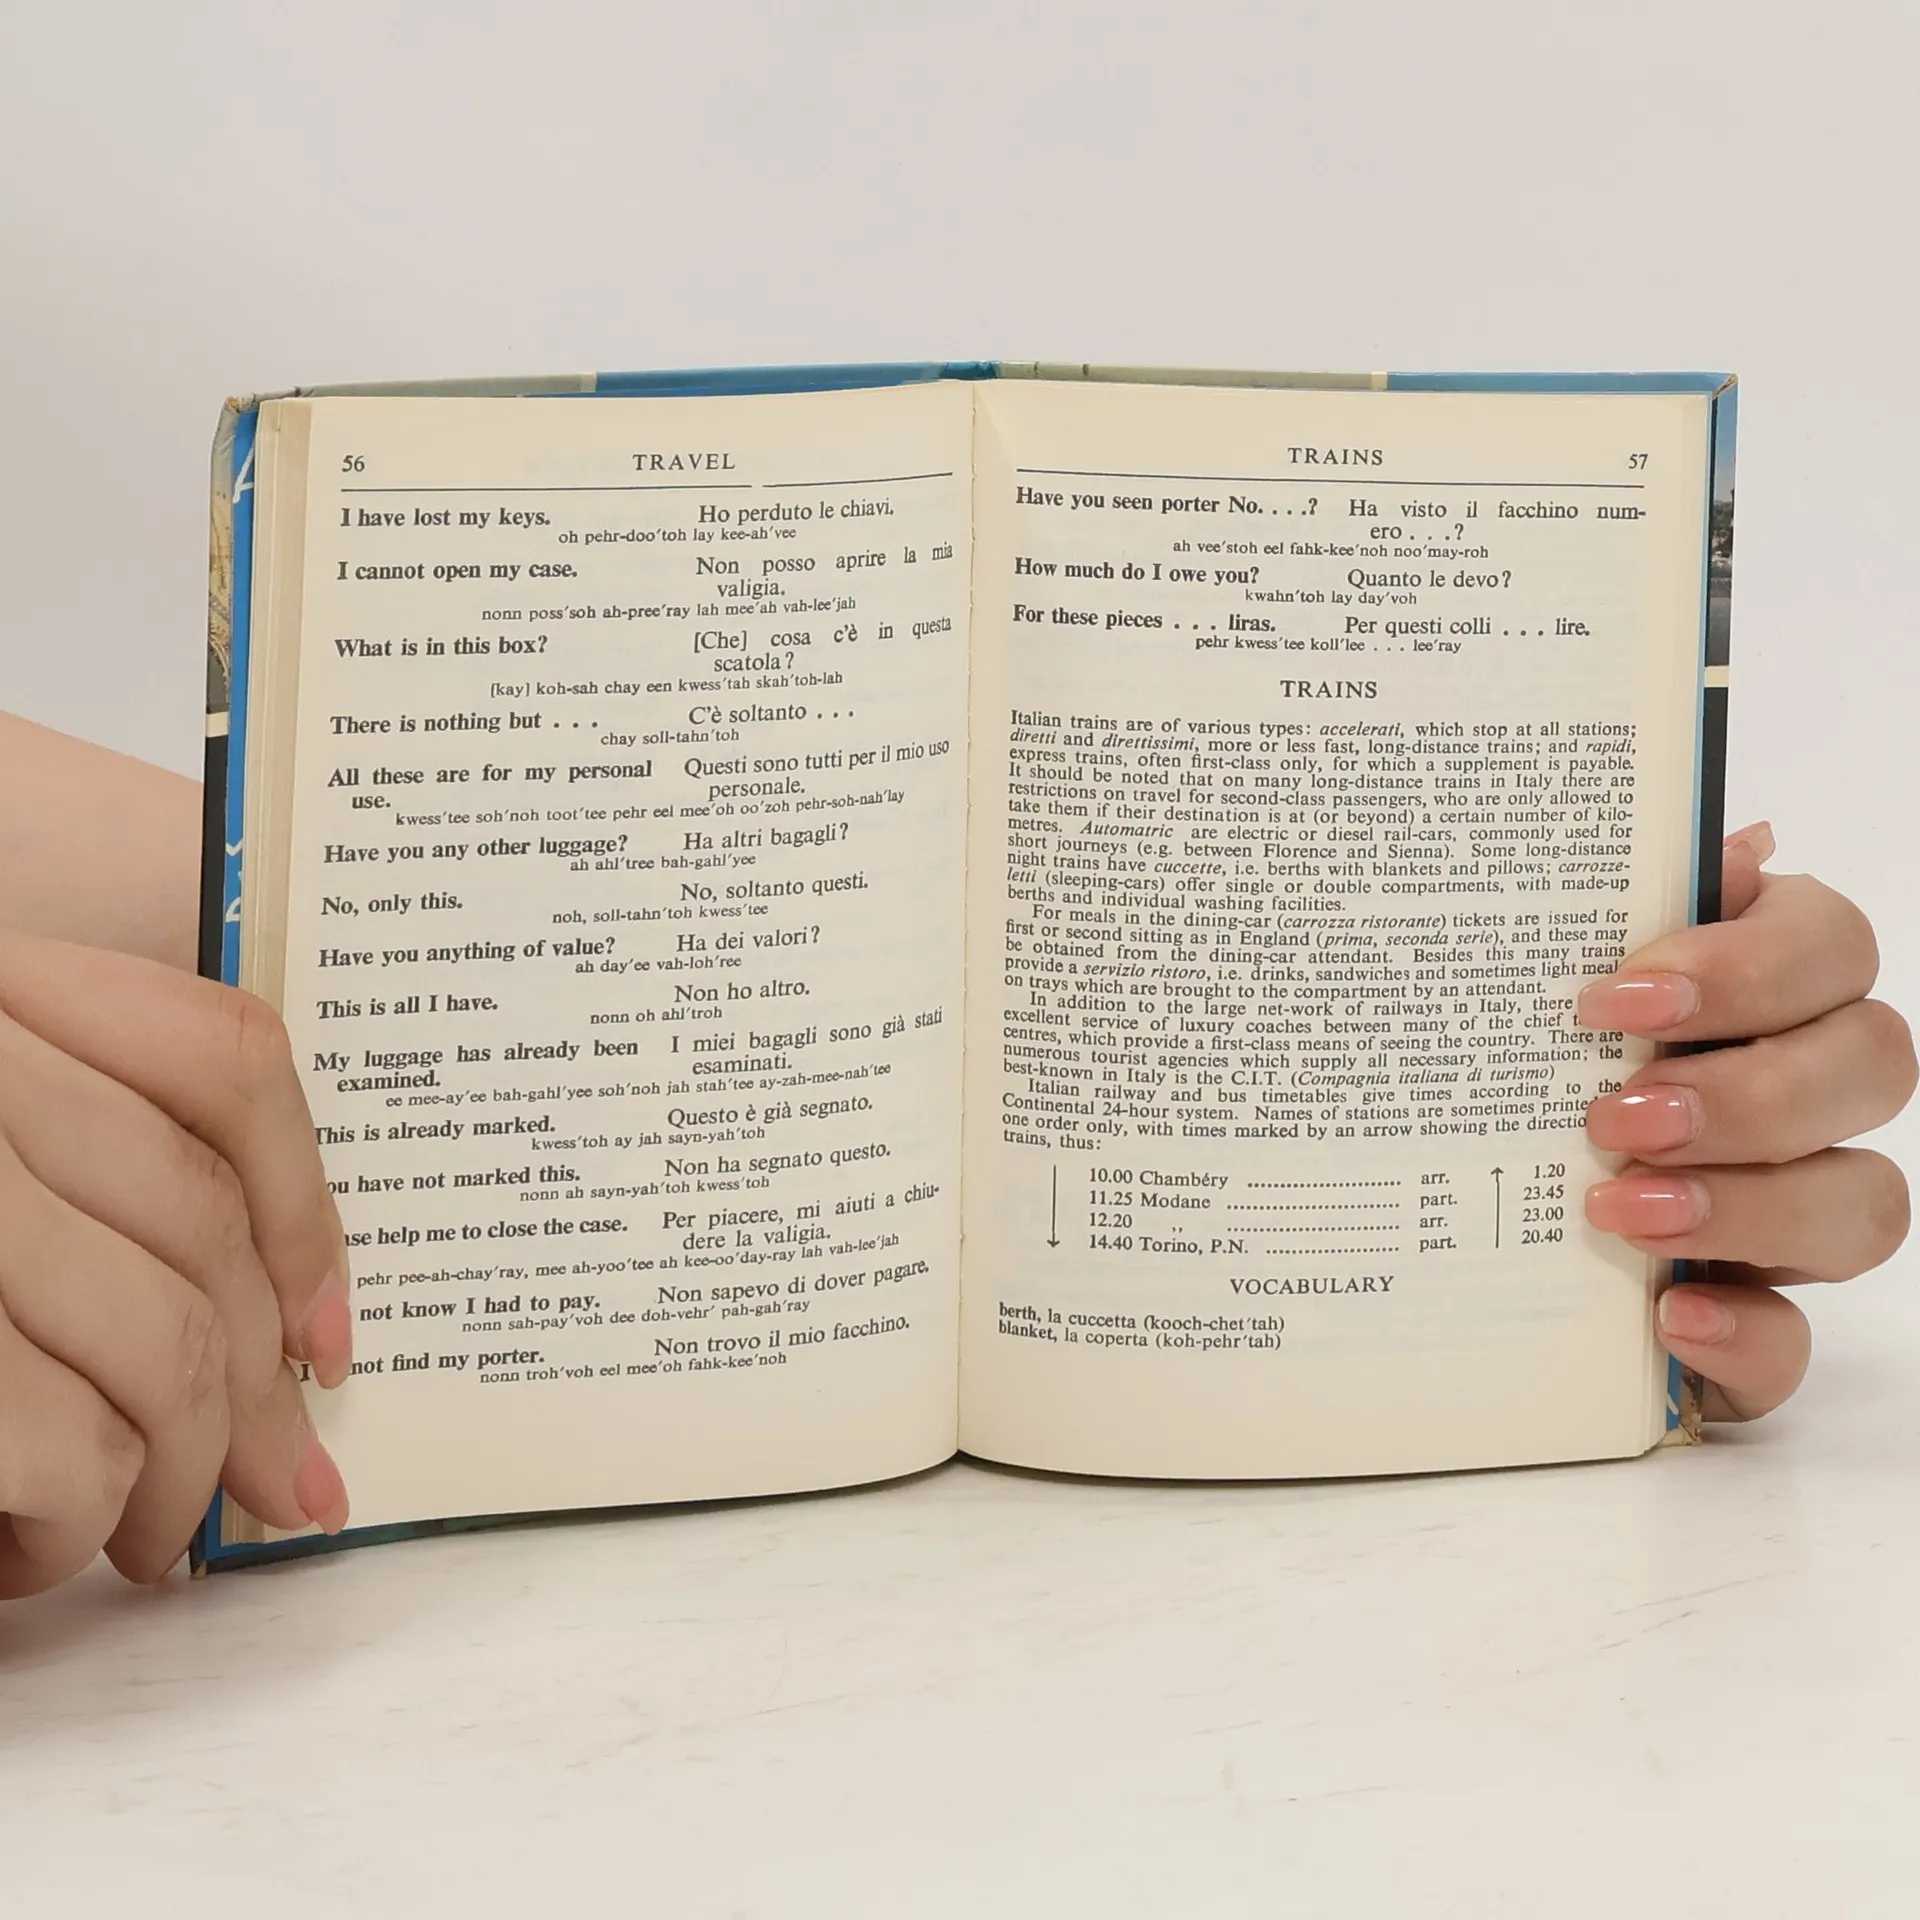 56 TRAVEL
I have lost my keys. Ho perduto le chiavi.
oh pehr-doo'toh lay kee-ah'vee
I cannot open my case. Non posso aprire la mia
valigia.
nonn poss'soh ah-pree'ray lah mee'ah vah-lee'jah
What is in this box? [Che] cosa c'è in questa
scatola?
[kay] koh-sah chay een kwess'tah skah'toh-lah
There is nothing but . . . C'è soltanto . . .
chay soll-tahn'toh
All these are for my personal Questi sono tutti per il mio uso
use. personale.
kwess'tee soh'noh toot'tee pehr eel mee'oh oo'zoh pehr-soh-nah'lay
Have you any other luggage? Ha altri bagagli?
ah ahl'tree bah-gahl'yee
No, only this. No, soltanto questi.
noh, soll-tahn'toh kwess'tee
Have you anything of value? Ha dei valori?
ah day'ee vah-loh'ree
This is all I have. Non ho altro.
nonn oh ahl'troh
My luggage has already been I miei bagagli sono già stati
examined. esaminati.
ee mee-ay'ee bah-gahl'yee soh'noh jah stah'tee ay-zah-mee-nah'tee
This is already marked. Questo è già segnato.
kwess'toh ay jah sayn-yah'toh
ou have not marked this. Non ha segnato questo.
nonn ah sayn-yah'toh kwess'toh
ase help me to close the case. Per piacere, mi aiuti a chiu-
dere la valigia.
pehr pee-ah-chay'ray, mee ah-yoo'tee ah kee-oo'day-ray lah vah-lee'jah
not know I had to pay. Non sapevo di dover pagare.
nonn sah-pay'voh dee doh-vehr' pah-gah'ray
I not find my porter. Non trovo il mio facchino.
nonn troh'voh eel mee'oh fahk-kee'noh
TRAINS 57
Have you seen porter No. . . .? Ha visto il facchino num-
ero . . .?
ah vee'stoh eel fahk-kee'noh noo'may-roh
How much do I owe you? Quanto le devo?
kwahn'toh lay day'voh
For these pieces . . . liras. Per questi colli . . . lire.
pehr kwess'tee koll'lee . . . lee'ray
TRAINS
Italian trains are of various types: accelerati, which stop at all stations;
diretti and direttissimi, more or less fast, long-distance trains; and rapidi,
express trains, often first-class only, for which a supplement is payable.
It should be noted that on many long-distance trains in Italy there are
restrictions on travel for second-class passengers, who are only allowed to
take them if their destination is at (or beyond) a certain number of kilo-
metres. Automatric are electric or diesel rail-cars, commonly used for
short journeys (e.g. between Florence and Sienna). Some long-distance
night trains have cuccette, i.e. berths with blankets and pillows; carrozze-
letti (sleeping-cars) offer single or double compartments, with made-up
berths and individual washing facilities.
For meals in the dining-car (carrozza ristorante) tickets are issued for
first or second sitting as in England (prima, seconda serie), and these may
be obtained from the dining-car attendant. Besides this many trains
provide a servizio ristoro, i.e. drinks, sandwiches and sometimes light meal
on trays which are brought to the compartment by an attendant.
In addition to the large net-work of railways in Italy, there
excellent service of luxury coaches between many of the chief t
centres, which provide a first-class means of seeing the country. There are
numerous tourist agencies which supply all necessary information; the
best-known in Italy is the C.I.T. (Compagnia italiana di turismo)
Italian railway and bus timetables give times according to the
Continental 24-hour system. Names of stations are sometimes printe
one order only, with times marked by an arrow showing the directio
trains, thus:
10.00 Chambéry arr. 1.20
11.25 Modane part. 23.45
12.20 ,, arr. 23.00
14.40 Torino, P.N. part. 20.40
VOCABULARY
berth, la cuccetta (kooch-chet'tah)
blanket, la coperta (koh-pehr'tah)